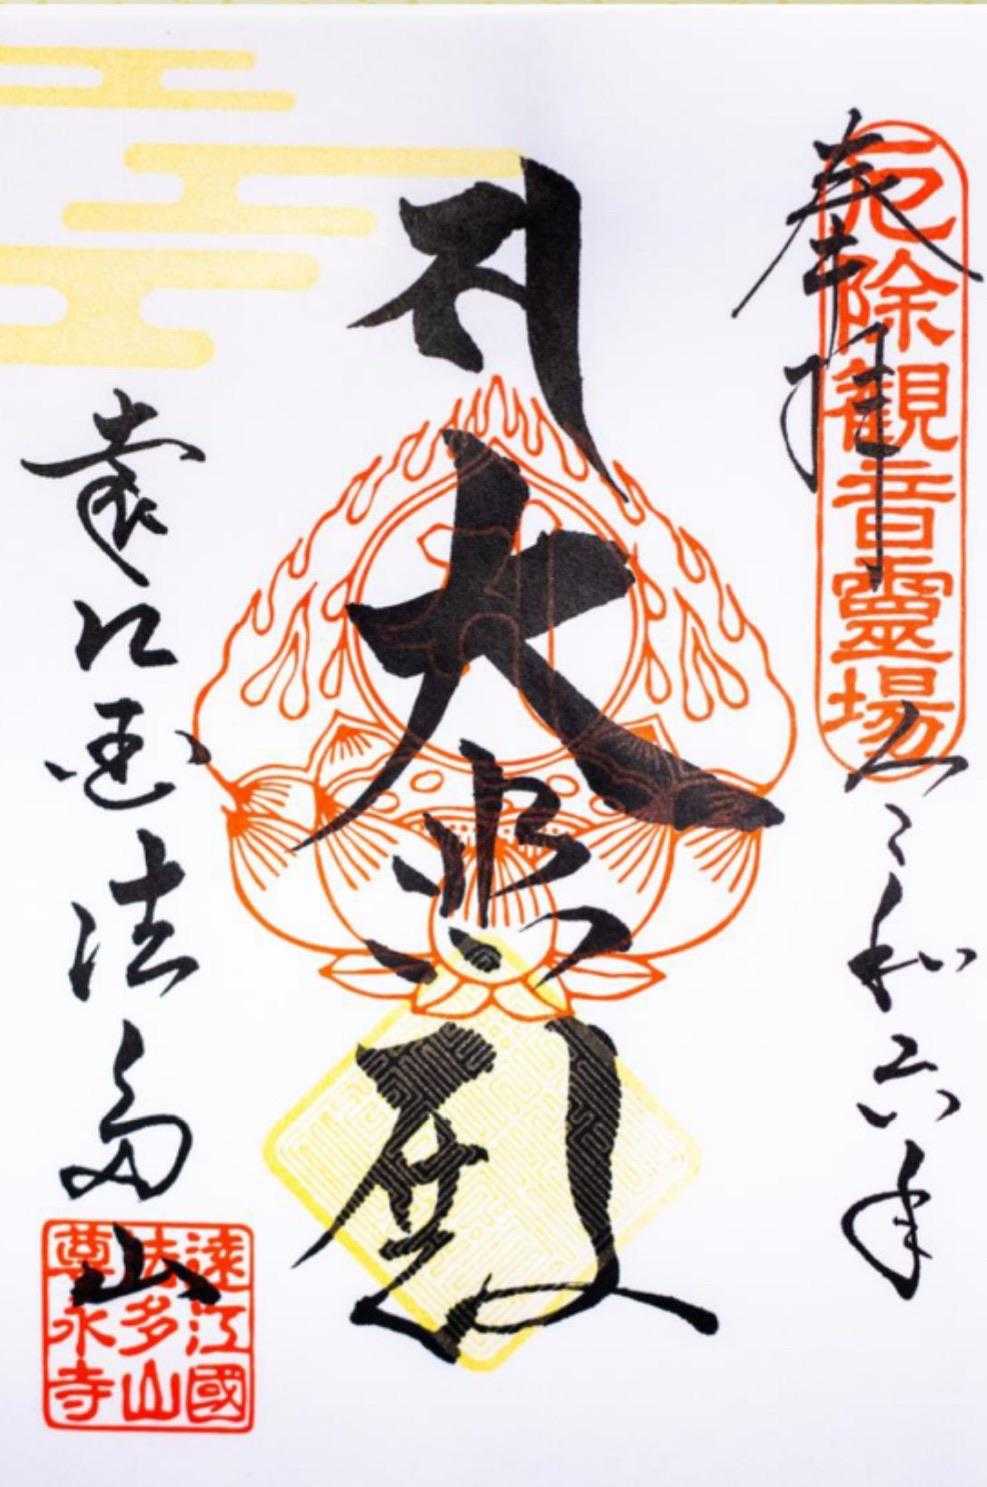 奉拝
厄除観音靈場
令和六年
大悲殿
遠江国法多山
遠江國
法多山
尊永寺